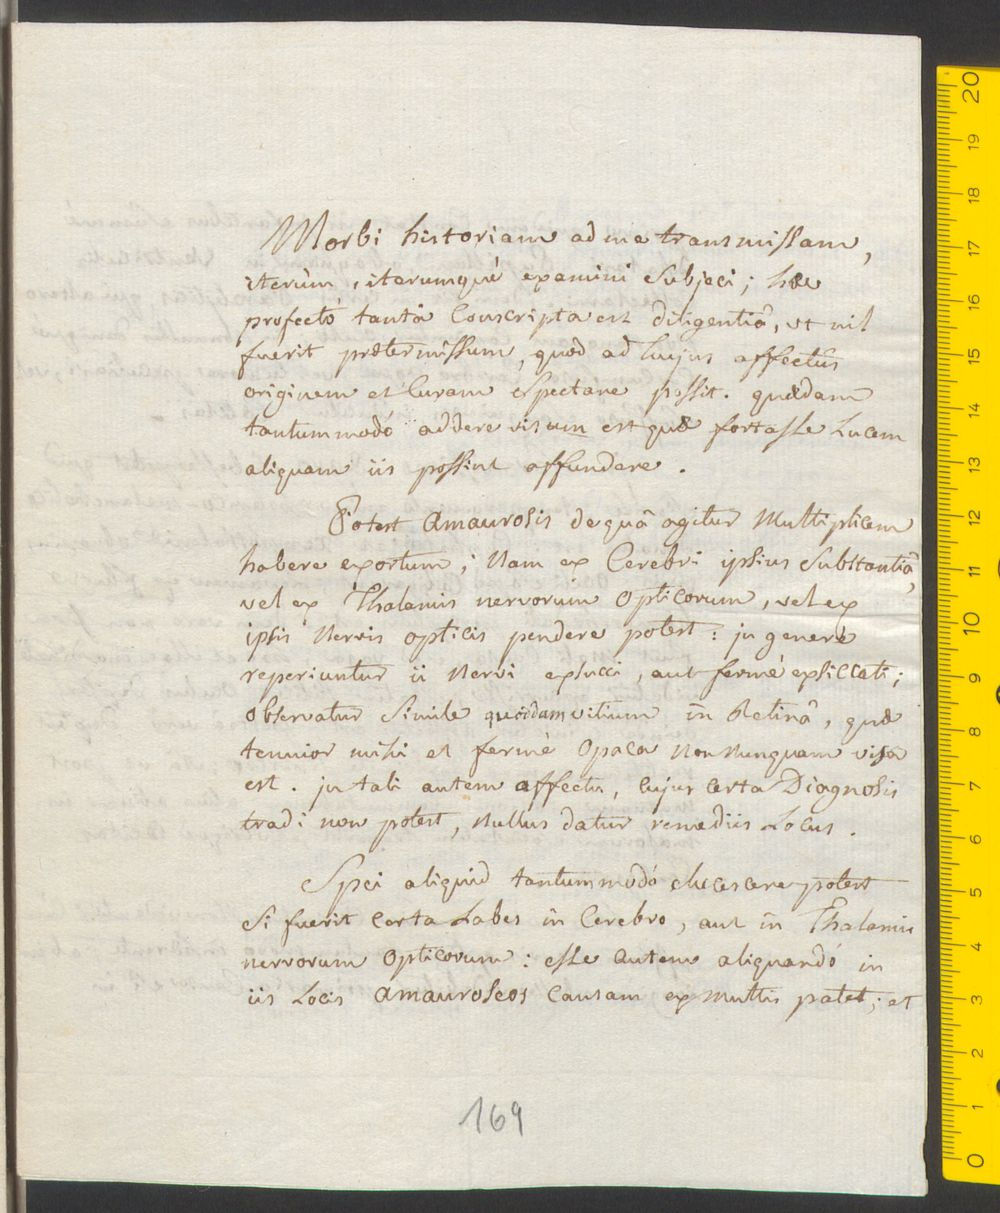 Morbi historiam ad me transmissam,
iterùm, iterumquè examini subjeci; hæc
profectò tantâ conscripta est diligentiâ, ut nil
fuerit prætermissum, quod ad hujus affectûs
originem et curam spectare possit. quædam
tantummodò addere visum est quæ fortasse lucem
aliquam iis possint affundere.
Potest Amaurosis de quâ agitur multiplicem
habere exortum; nam ex cerebri ipsius substantiâ,
vel ex Thalamis nervorum opticorum, vel ex
ipsis nervis opticis pendere potest: in genere
reperiuntur ii nervi exsucci, aut fermè exsiccati;
observatur simile quoddam vitium in Retinâ, quæ
tenuior mihi et fermè opaca non nunquam visa
est. in tali autem affectu, cujus certa Diagnosis
tradi non potest, nullus datur remediis locus.
Spei aliquid tantummodò elucescere potest
si fuerit certa labes in Cerebro, aut in Thalamis
nervorum opticorum: esse autem aliquandò in
iis locis amauroseos causam ex multis patet; et
169
0 1 2 3 4 5 6 7 8 9 10 11 12 13 14 15 16 17 18 19 20